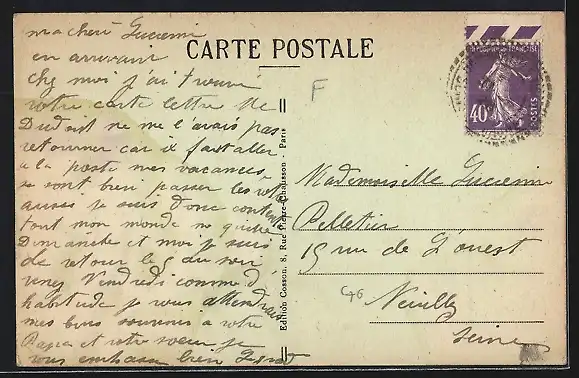 ma cherè Lucienne
en arrivant
chez moi j'ai trouvé
votre carte lettre Me
ne me l'avais pas
retourner car il fallait aller
a la poste mes vacances
se sont bien passer les votres
aussi je suis donc contente
tout mon monde me quitte
Dimanche et moi je suis
de retour le 5 du soir
venez Vendredi comme d'
habitude je vous attendrais
mes bons souvenirs a votre
Papa et votre soeur je
vous embrasse bien
CARTE POSTALE
F
RÉPUBLIQUE FRANÇAISE
40c
POSTES
Edition Cosson, 8, Rue Pierre-Chausson - Paris
Mademoiselle Lucienne
Pelletier
15 rue de L'ouest
Neuilly
Seine